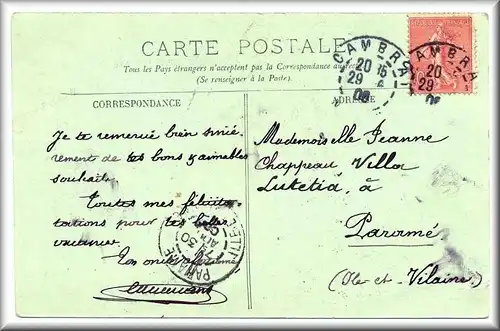 CARTE POSTALE
Tous les Pays étrangers n'acceptent pas la Correspondance au
(Se renseigner à la Poste.)
CORRESPONDANCE
ADRESSE
CAMBRAI
20 15
29 4
06
CAMBRAI
20
29
06
Je te remercie bien sincè-
rement de tes bons & aimables
souhaits.
Toutes mes félici-
tations pour tes belles
vacances
Ton
Mademoiselle Jeanne
Chappeau Villa
Lutetia, à
Paramé
(Ille et Vilaine)
PARAMÉ
7 30